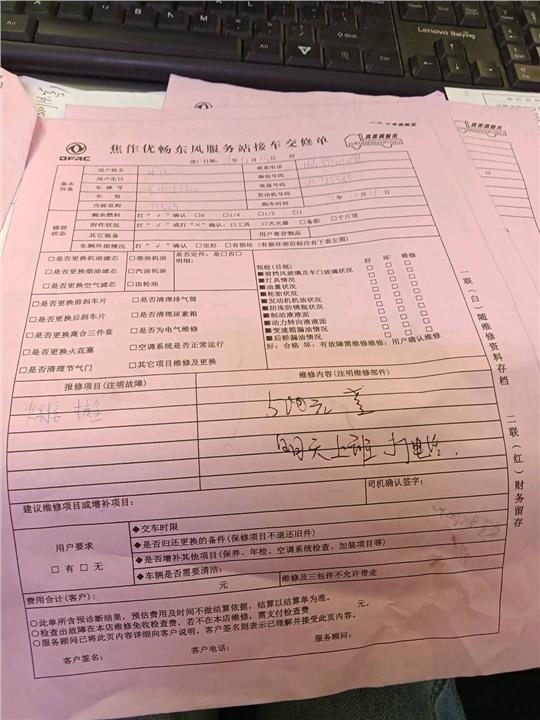 Lenovo
DFAC
焦作优畅东风服务站接车交修单
真芯满服务
进厂日期: 年 月 日 时
基本信息
用户姓名
联系电话
用户生日
车牌号
底盘号码
车型
发动机号
当前里程
购车时间
修前状态
剩余燃料 打"√"确认 □0 □1/4 □1/2 □1
附件状况 打"√"或打"×"确认:□工具 □灭火器 □备胎 □千斤顶
其它装备
用户寄存物品
车辆外部情况 打"√"确认 □完好 □有损坏(有损坏部位标注有下表左图)
□是否更换机油滤芯 □柴油机油
□是否更换柴油滤芯 □汽油机油
□是否更换空气滤芯 □齿轮油
是否定件:是□否□
明细:
□是否更换前刹车片 □是否清理排气筒
□是否更换后刹车片 □是否清理尿素箱
□是否更换离合三件套 □是否为电气维修
□是否更换火花塞 □空调系统是否正常运行
□是否清理节气门 □其它项目维修及更换
预检(目视) 好 坏 维修
■前挡风玻璃及车门玻璃状况 □ □ □
■灯具情况 □ □ □
■油量状况 □ □ □
■轮胎状况 □ □ □
■发动机机油状况 □ □ □
■防冻防锈瓶状况 □ □ □
■制动液液面 □ □ □
■动力转向液液面 □ □ □
■变速箱漏油情况 □ □ □
■后桥漏油情况 □ □ □
好:合格 坏:有故障需维修维修:用户确认维修
报修项目(注明故障)
维修内容(注明维修部件)
明天上班打电话.
建议维修项目或增补项目:
司机确认签字:
用户要求
□有 □无
◆交车时限
◆是否归还更换的备件(保修项目不退还旧件)
◆是否增补其他项目(保养、年检、空调系统检查、加装项目等)
◆车辆是否需要清洁:
费用合计(客户): 元
维修及三包件不允许带走
○此单所含预诊断结果,预估费用及时间不做结算依据,结算以结算单为准。
○检查出故障在本店维修免收检查费,若不在本店维修,需支付检查费 元。
○服务顾问已将此页内容详细向客户说明,客户签名则表示已理解并接受此页内容。
客户签名: 客户电话: 服务顾问:
一联(白)随维修资料存档
二联(红)财务留存